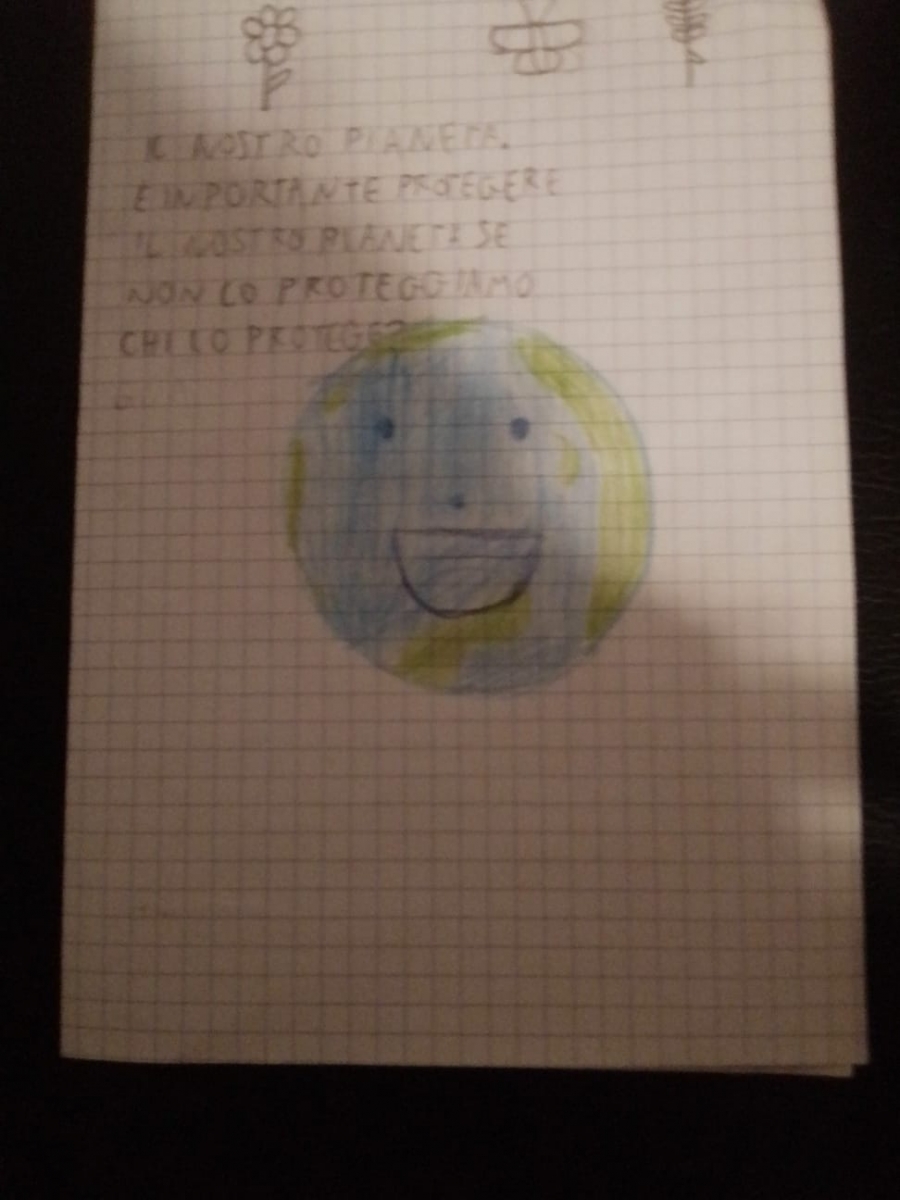 IL NOSTRO PIANETA.
E INPORTANTE PROTEGERE
IL NOSTRO PIANETA SE
NON LO PROTEGGIAMO
CHI LO PROTEGE?